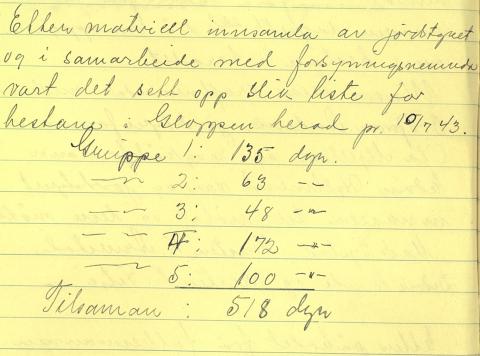 Etter matriell innsamla av jordstyret
og i samarbeide med forsyningsnemnda
vart det sett opp slik liste for
hestane i Gloppen herad pr. 10/7 43.
Gruppe 1: 135 dyr.
—〃— 2: 63 -〃-
—〃— 3: 48 -〃-
—〃— 4: 172 -〃-
—〃— 5: 100 -〃-
Tilsaman : 518 dyr